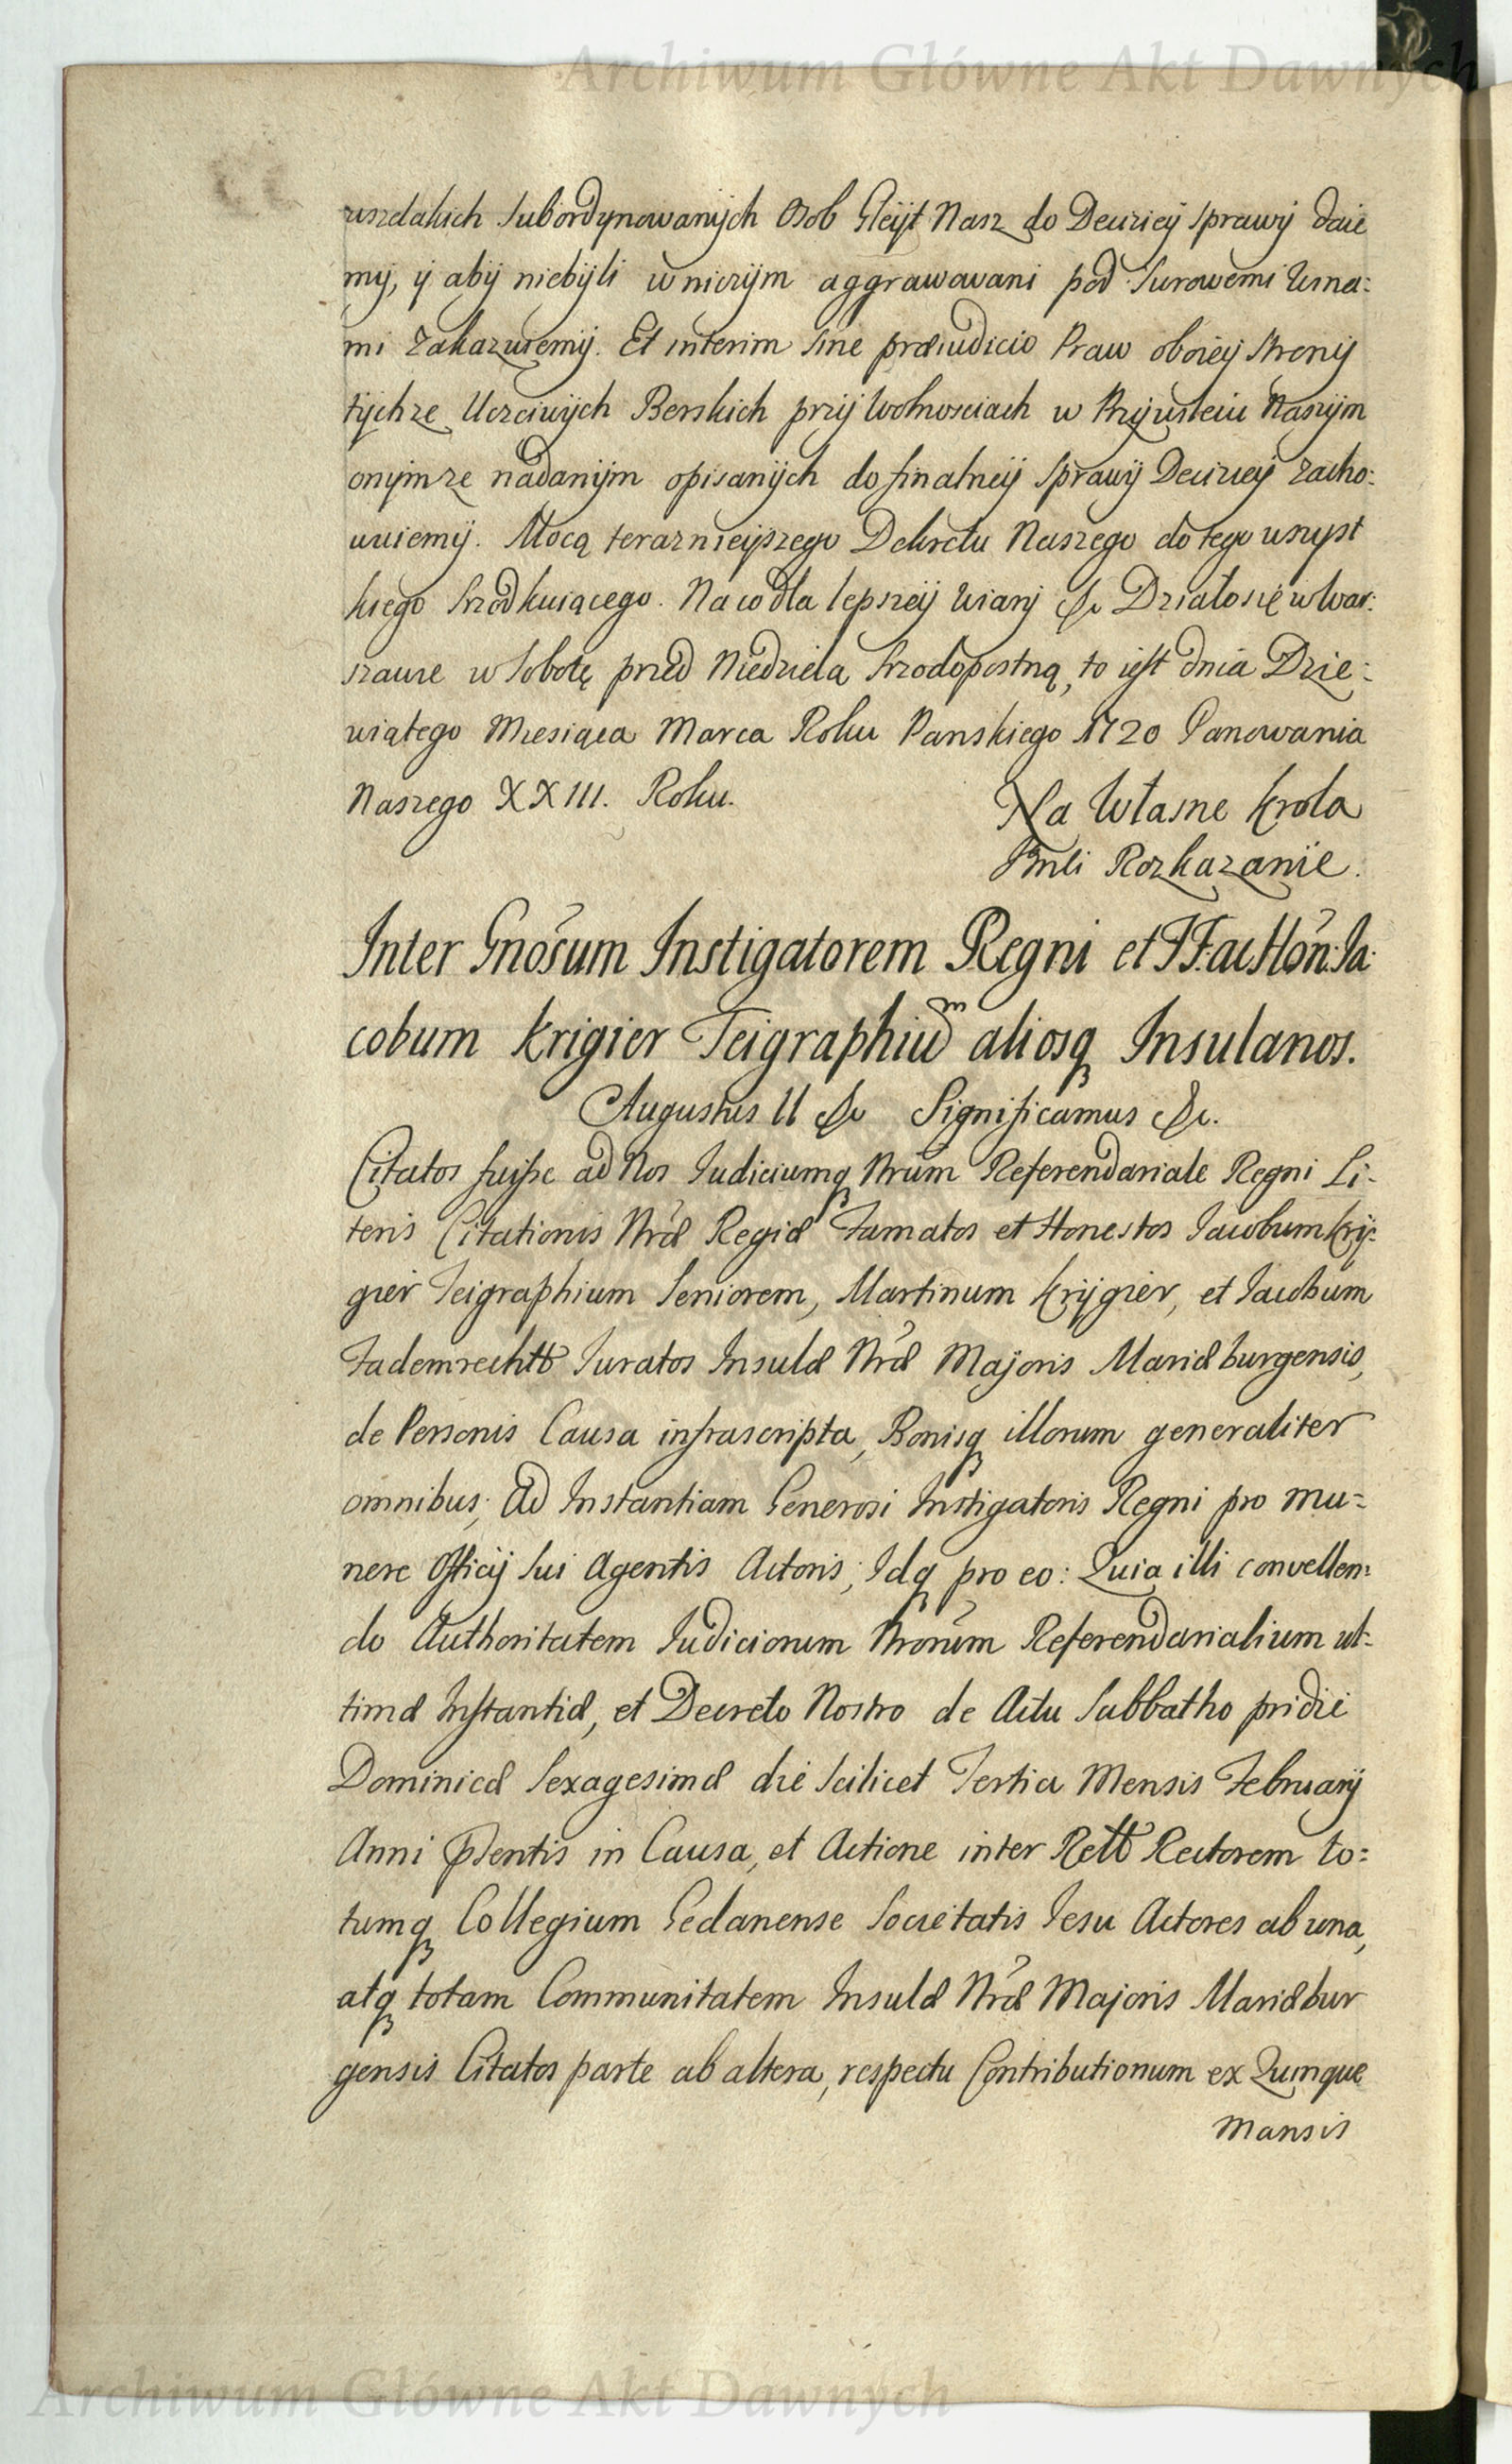 Archiwum Główne Akt Dawnych
wszelakich Subordynowanÿch Osob Gleÿt Nasz do Decizieÿ Sprawÿ daie
mÿ, ÿ abÿ niebÿli w niczÿm aggrawawani pod Surowemi Wina:
mi Zakazuiemÿ. Et interim Sine præiudicio Praw oboieÿ Stronÿ
tÿchze Uczciwÿch Berskich przÿ Wolnosciach w Przÿwileiu Naszÿm
onÿmze nadanÿm opisanÿch do finalneÿ Sprawÿ Decizieÿ zacho:
wuiemÿ. Mocą terazniejszego Dekretu Naszego do tego wszyst
kiego Srzodkuiącego. Na co dla lepszeÿ Wiarÿ &c Działo się w War:
szawie w Sobotę przed Niedziela Srzodopostną, to iest dnia Dzie:
wiątego Miesiąca Marca Roku Panskiego 1720 Panowania
Naszego XXIII. Roku.
Na Własne Krola
Jmci Rozkazanie.
Inter Gnosum Instigatorem Regni et FF. ac Hon: Ja:
cobum Krigier Teigraphiũm aliosq Insulanos.
Augustus II &c Significamus &c.
Citatos fuisse ad Nos Iudiciumq Nrum Referendariale Regni Li:
teris Citationis Nræ Regiæ Famatos et Honestos Iacobum Krÿ:
gier Teigraphium Seniorem, Martinum Krÿgier, et Iacobum
Fademrechtt Iuratos Insulæ Nræ Majoris Mariæburgensis,
de Personis Causa infrascripta, Bonisq illorum generaliter
omnibus; Ad Instantiam Generosi Instigatoris Regni pro mu=
nere Officij Sui Agentis Actoris; Idq pro eo: Quia illi convellen:
do Authoritatem Iudiciorum Nrorum Referendarialium ul:
timæ Instantiæ, et Decreto Nostro de Actu Sabbatho pridie
Dominicæ Sexagesimæ die Scilicet Tertia Mensis Februarÿ
Anni Psentis in Causa, et Actione inter Rell Rectorem to:
tumq Collegium Gedanense Societatis Iesu Actores ab una,
atq totam Communitatem Insulæ Nræ Majoris Mariæbur
gensis Citatos parte ab altera, respectu Contributionum ex Quinque
Mansis
Archiwum Główne Akt Dawnych